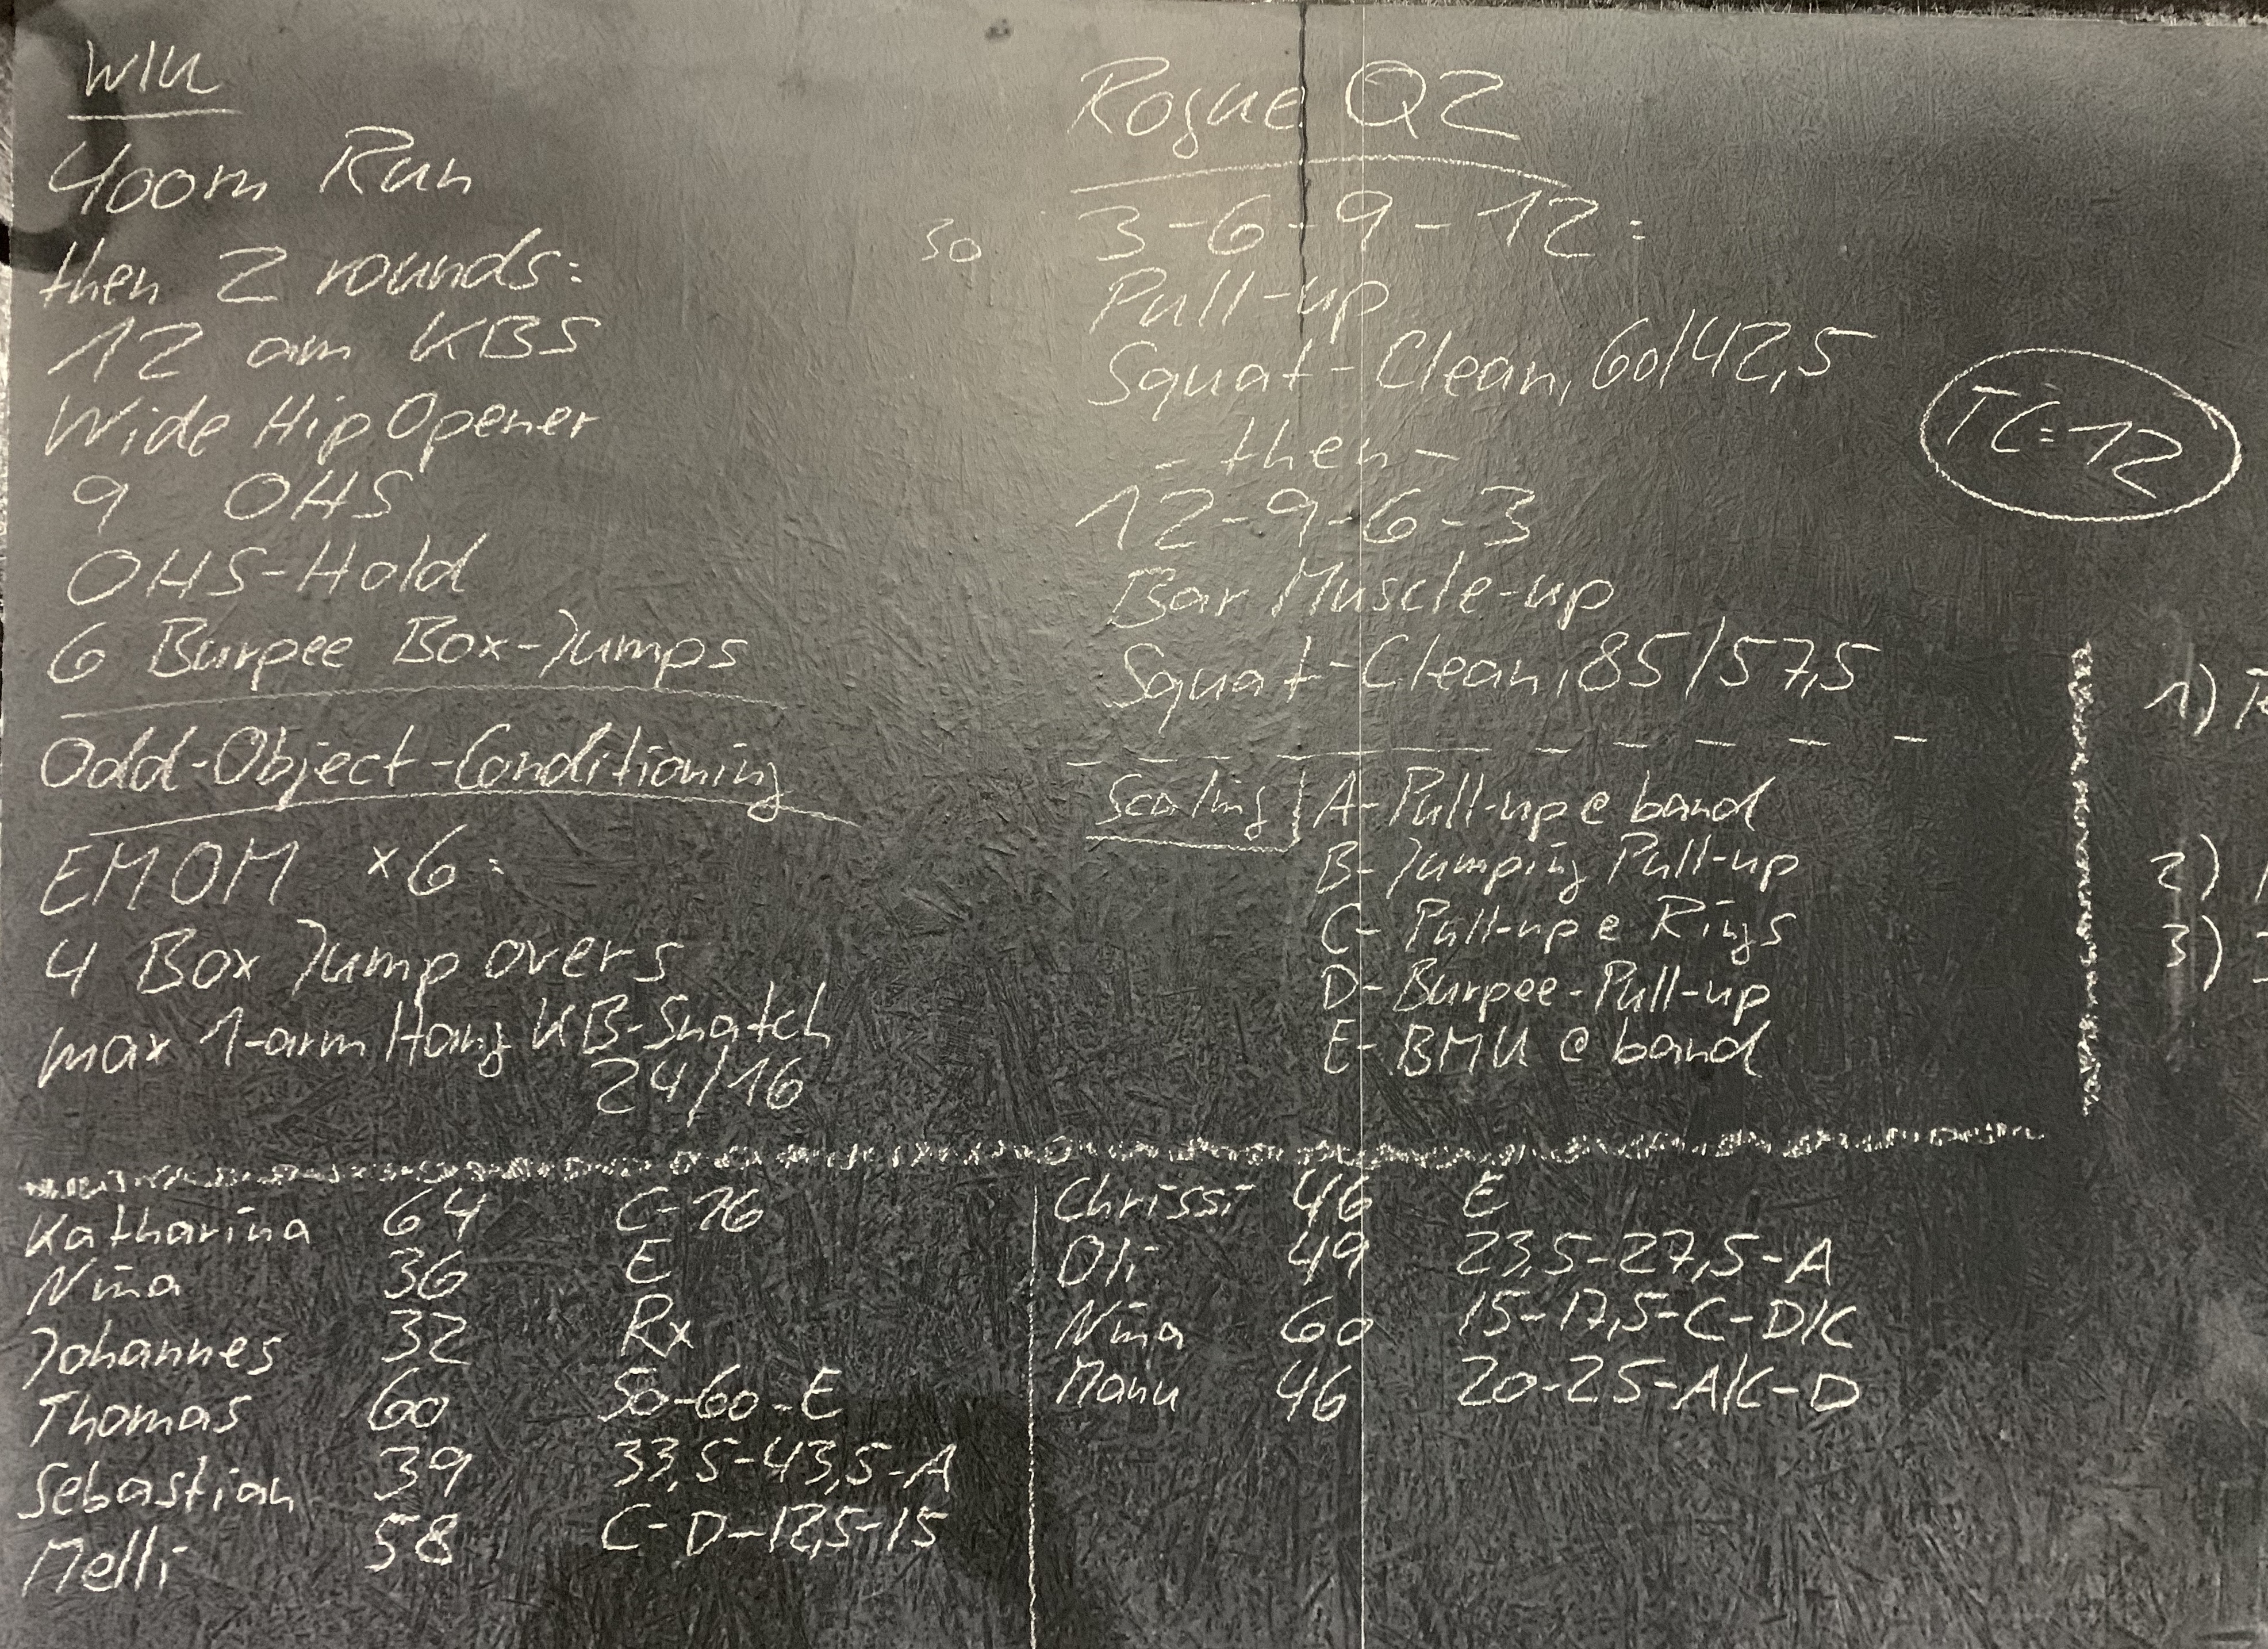 WlU
400m Run
then 2 rounds:
12 am KBS
Wide Hip Opener
9 OHS
OHS-Hold
6 Burpee Box-Jumps
Odd-Object-Conditioning
EMOM x6:
4 Box Jump overs
max 1-arm Hang KB-Snatch
24/16
Rogue Q2
so 3-6-9-12:
Pull-up
Squat-Clean, 60/42,5
- then -
12-9-6-3
Bar Muscle-up
Squat-Clean, 85/57,5
TC=12
Scaling A- Pull-up @ band
B- Jumping Pull-up
C- Pull-up @ Rings
D- Burpee-Pull-up
E- BMU @ band
1)
2)
3)
Katharina 64 C-16
Nina 36 E
Johannes 32 Rx
Thomas 60 50-60-E
Sebastian 39 33,5-43,5-A
Melli 58 C-D-12,5-15
Chrissi 46 E
Oli 49 23,5-27,5-A
Nina 60 15-17,5-C-D/C
Manu 46 20-25-A/C-D